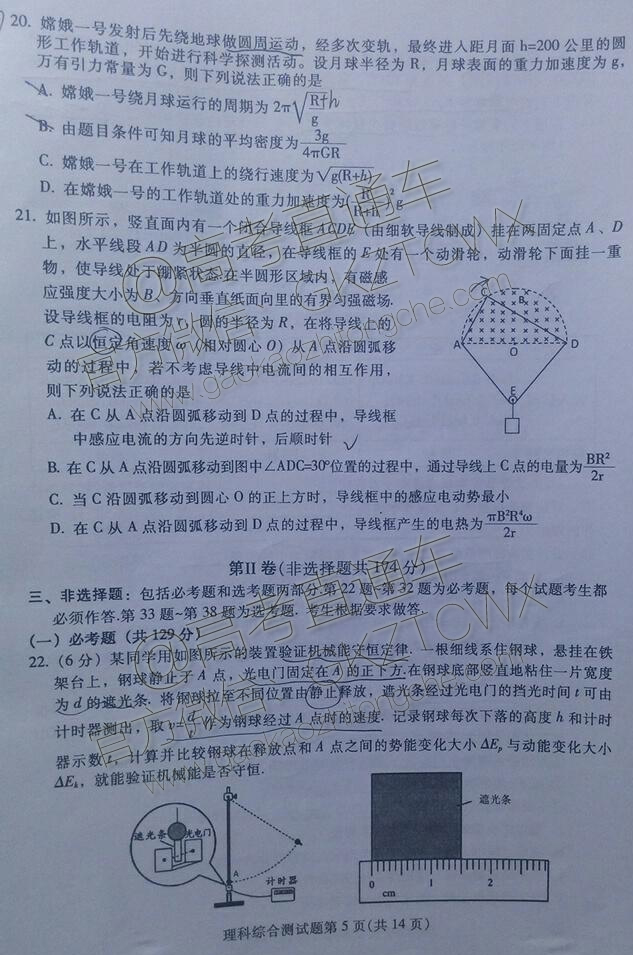 20. 嫦娥一号发射后先绕地球做圆周运动，经多次变轨，最终进入距月面h=200公里的圆
形工作轨道，开始进行科学探测活动。设月球半径为R，月球表面的重力加速度为g，
万有引力常量为G，则下列说法正确的是
A. 嫦娥一号绕月球运行的周期为2π√(R+h/g)
B. 由题目条件可知月球的平均密度为3g/4πGR
C. 嫦娥一号在工作轨道上的绕行速度为√g(R+h)
D. 在嫦娥一号的工作轨道处的重力加速度为(R/R+h)²g
21. 如图所示，竖直面内有一个闭合导线框ACDE（由细软导线制成）挂在两固定点A、D
上，水平线段AD为半圆的直径，在导线框的E处有一个动滑轮，动滑轮下面挂一重
物，使导线处于绷紧状态.在半圆形区域内，有磁感
应强度大小为B，方向垂直纸面向里的有界匀强磁场.
设导线框的电阻为r，圆的半径为R，在将导线上的
C点以恒定角速度ω（相对圆心O）从A点沿圆弧移
动的过程中，若不考虑导线中电流间的相互作用，
则下列说法正确的是
A. 在C从A点沿圆弧移动到D点的过程中，导线框
中感应电流的方向先逆时针，后顺时针
B. 在C从A点沿圆弧移动到图中∠ADC=30°位置的过程中，通过导线上C点的电量为BR²/2r
C. 当C沿圆弧移动到圆心O的正上方时，导线框中的感应电动势最小
D. 在C从A点沿圆弧移动到D点的过程中，导线框产生的电热为πB²R⁴ω/2r
C B₁
A O D
E
第II卷(非选择题共174分)
三、非选择题：包括必考题和选考题两部分.第22题~第32题为必考题，每个试题考生都
必须作答.第33题~第38题为选考题. 考生根据要求做答.
(一) 必考题（共129分）
22.（6分）某同学用如图所示的装置验证机械能守恒定律. 一根细线系住钢球，悬挂在铁
架台上，钢球静止于A点，光电门固定在A的正下方.在钢球底部竖直地粘住一片宽度
为d的遮光条. 将钢球拉至不同位置由静止释放，遮光条经过光电门的挡光时间t可由
计时器测出，取v=d/t作为钢球经过A点时的速度. 记录钢球每次下落的高度h和计时
器示数t，计算并比较钢球在释放点和A点之间的势能变化大小ΔEp与动能变化大小
ΔEk，就能验证机械能是否守恒.
遮光条 光电门
A
计时器
遮光条
0 1 2
cm
理科综合测试题第5页(共14页)
@高考直通车
官方微信：GKZTCWX
www.gaokaozhitongche.com
@高考直通车
官方微信：GKZTCWX
www.gaokaozhitongche.com